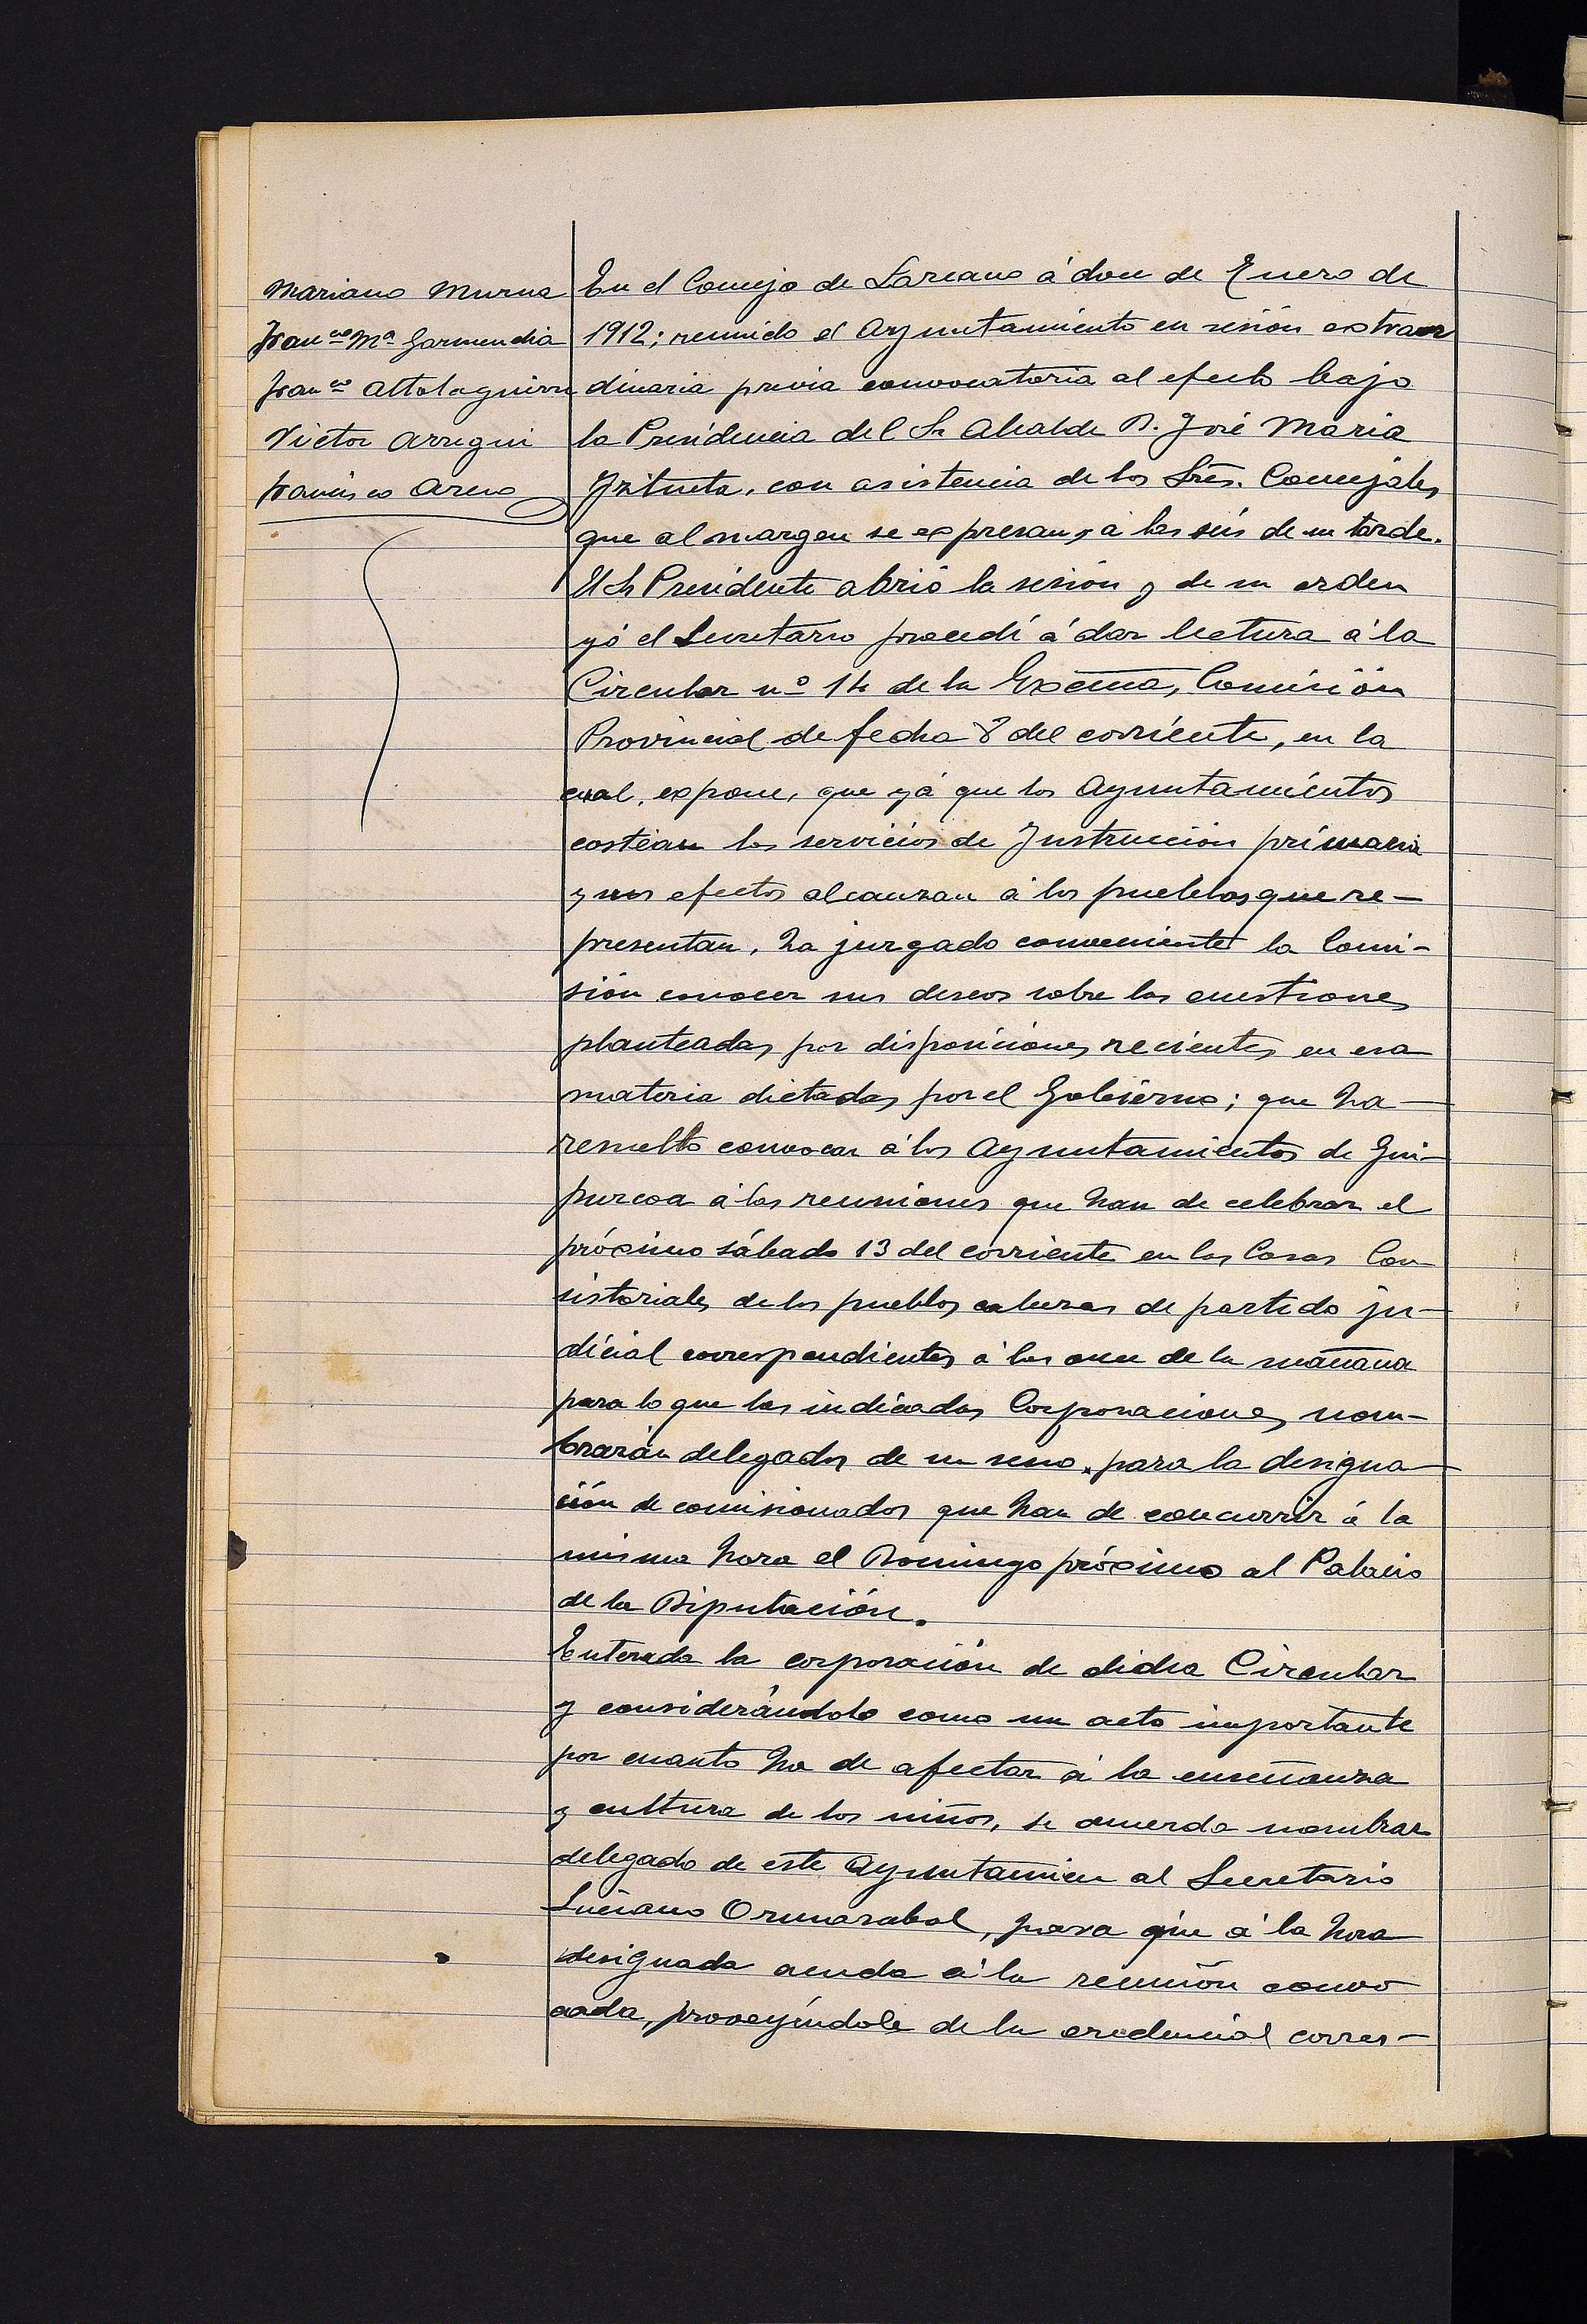 Mariano Murua
Fran.co Mª Garmendia
Fran.co Altolaguirre
Victor Arregui
Francisco Areso
En el Concejo de Lazcano á doce de Enero de
1912; reunido el Ayuntamiento en sesión extraor
dinaria previa convocatoria al efecto bajo
la Presidencia del Sr Alcalde D. José Maria
Yztueta, con asistencia de los Sres. Concejales
que al margen se expresan, á las seis de su tarde.
El Sr Presidente abrió la sesión y de su orden
yó el Secretario procedí á dar lectura á la
Circular nº 14 de la Excma, Comisión
Provincial de fecha 8 del corriente, en la
cual, expone, que yá que los Ayuntamientos
costéan los servicios de Instrucción primaria
y sus efectos alcanzan á los pueblos que re-
presentan, ha juzgado conveniente la Comi-
sión conocer sus deseos sobre las cuestiones
planteadas por disposiciones recientes en esa
materia dictadas por el Gobierno; que ha
resuelto convocar á los Ayuntamientos de Gui-
puzcoa á las reuniones que han de celebrar el
próximo sábado 13 del corriente en las Casas Con
sistoriales de los pueblos cabezas de partido ju-
dicial correspondientes á las once de la mañana
para lo que las indicadas Corporaciones nom-
brarán delegados de su seno, para la designa-
ción de comisionados que han de concurrir á la
misma hora el Domingo próximo al Palacio
de la Diputación.
Enterada la corporación de dicha Circular
y considerándolo como un acto importante
por cuanto ha de afectar á la enseñanza
y cultura de los niños, se acuerda nombrar
delegado de este Ayuntamien al Secretario
Luciano Ormazabal, para que á la hora
designada acuda á la reunión convo
cada, proveyéndole de la credencial corres-